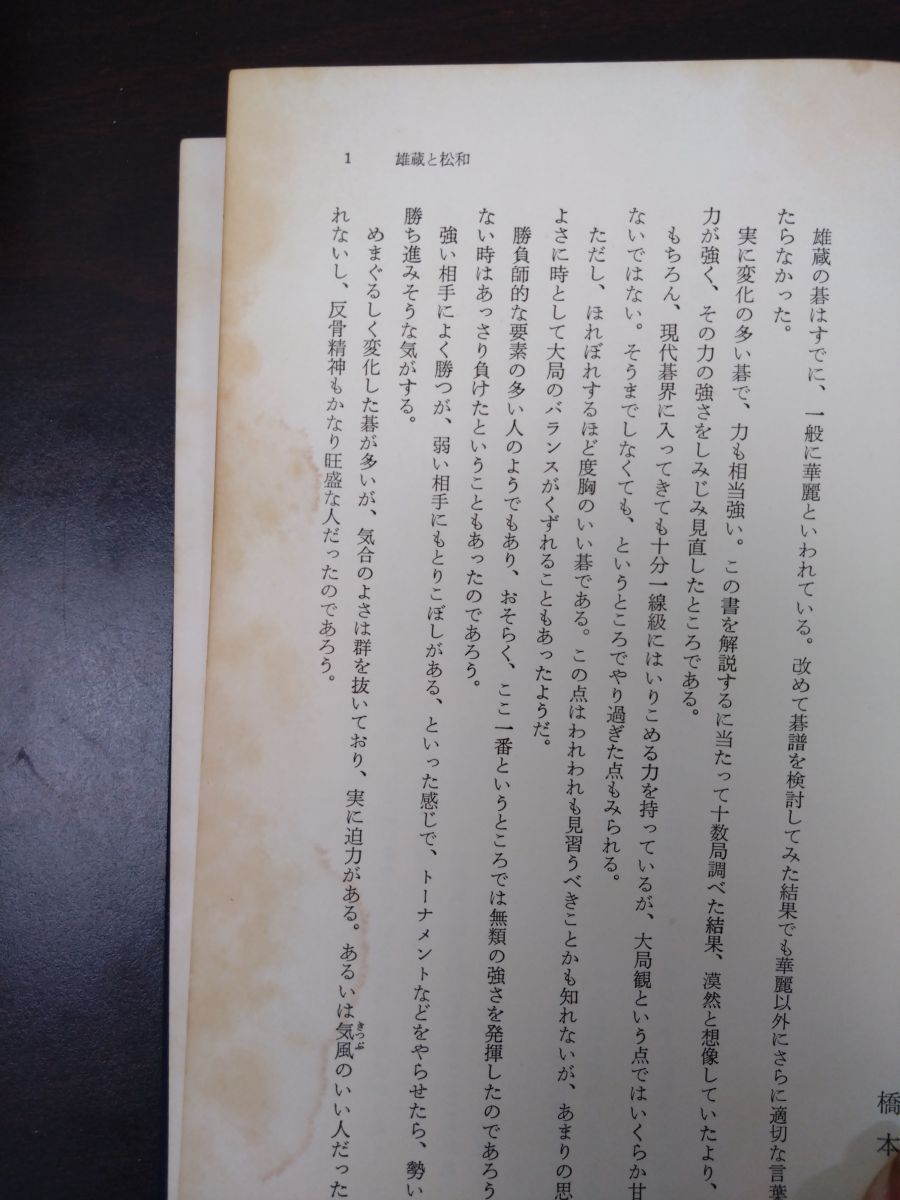 1 雄蔵と松和
橋本
雄蔵の碁はすでに、一般に華麗といわれている。改めて碁譜を検討してみた結果でも華麗以外にさらに適切な言葉
たらなかった。
実に変化の多い碁で、力も相当強い。この書を解説するに当たって十数局調べた結果、漠然と想像していたより、
力が強く、その力の強さをしみじみ見直したところである。
もちろん、現代碁界に入ってきても十分一線級にはいりこめる力を持っているが、大局観という点ではいくらか甘
ないではない。そうまでしなくても、というところでやり過ぎた点もみられる。
ただし、ほれぼれするほど度胸のいい碁である。この点はわれわれも見習うべきことかも知れないが、あまりの思
よさに時として大局のバランスがくずれることもあったようだ。
勝負師的な要素の多い人のようでもあり、おそらく、ここ一番というところでは無類の強さを発揮したのであろう
ない時はあっさり負けたということもあったのであろう。
強い相手によく勝つが、弱い相手にもとりこぼしがある、といった感じで、トーナメントなどをやらせたら、勢い
勝ち進みそうな気がする。
めまぐるしく変化した碁が多いが、気合のよさは群を抜いており、実に迫力がある。あるいは気風のいい人だった
きっぷ
れないし、反骨精神もかなり旺盛な人だったのであろう。